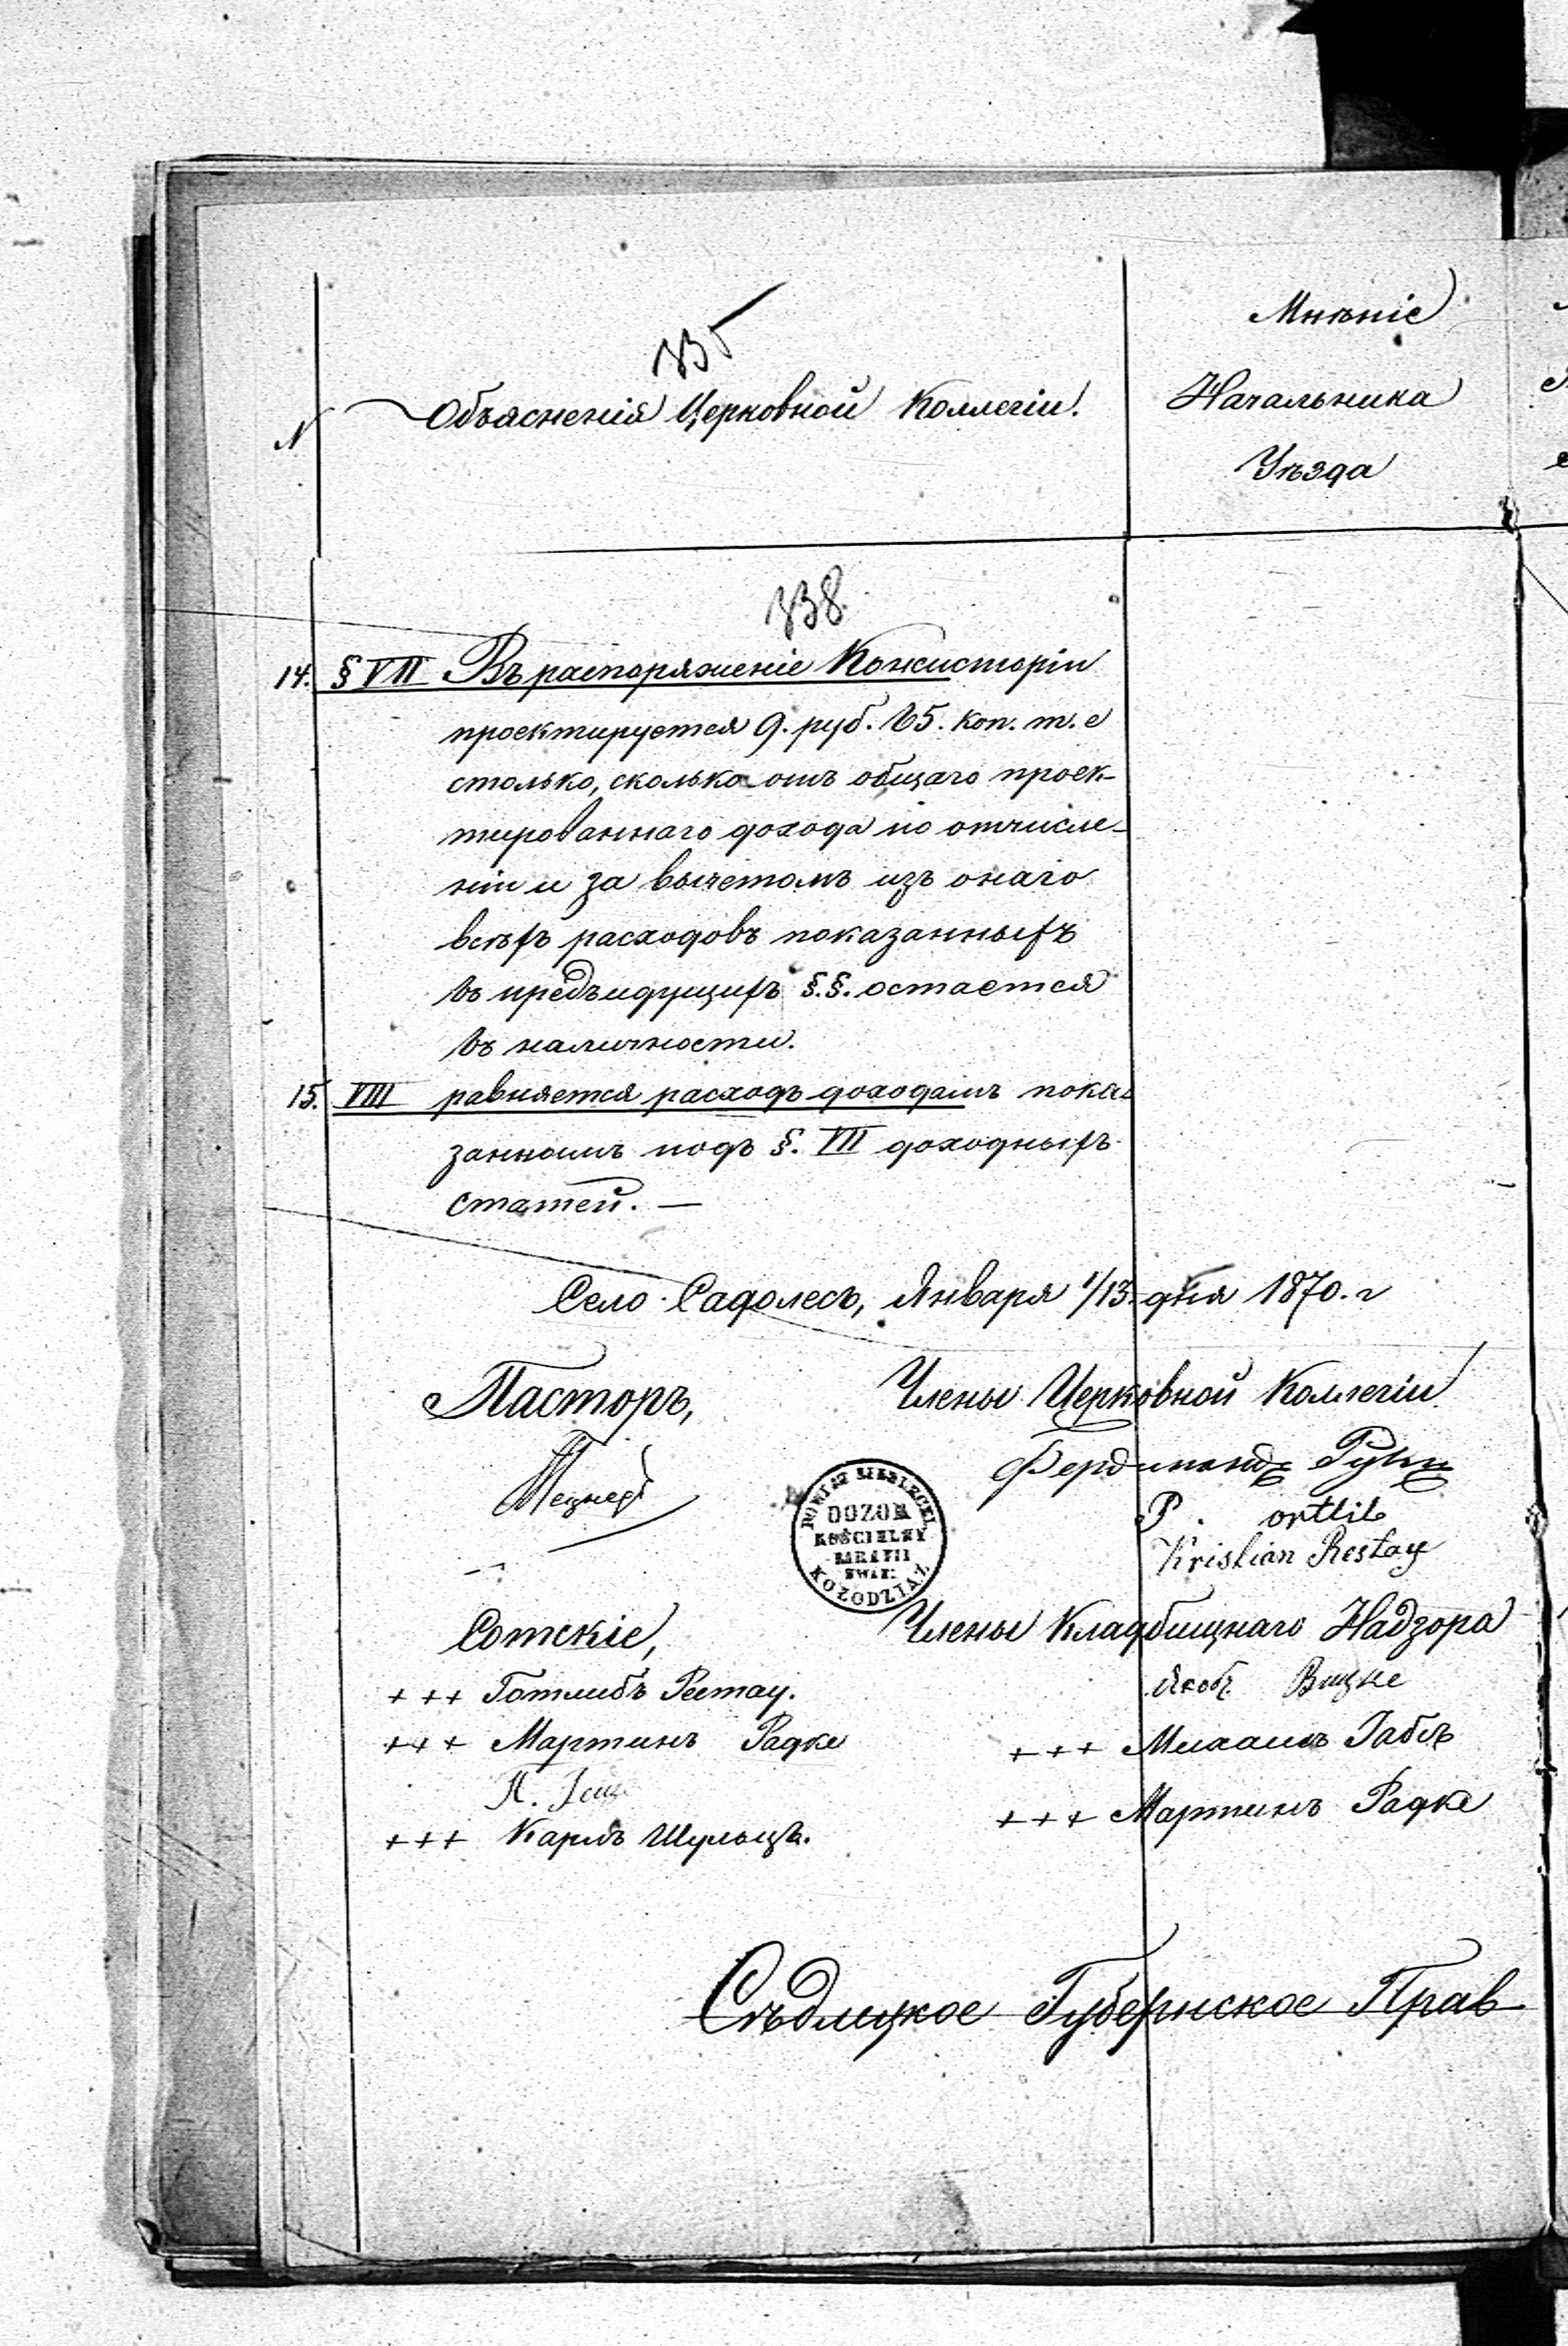 335
Мнѣніе
N Объясненія Церковной Коллегіи.
Начальника
Уѣзда
338
14. § VII Въ распоряженіе Консисторіи
проектируется 9. руб. 65. коп. т. е
столько, сколько отъ общаго проек-
тированнаго дохода по отчисле-
ніи и за вычетомъ изъ онаго
всѣхъ расходовъ показанныхъ
въ предъидущихъ §.§. остается
въ наличности.
15. VIII равняется расходъ доходамъ пока
заннымъ подъ §. VII доходныхъ
статей. —
Село Садолесь, Января 1/13 дня 1870. г
Пасторъ,
Члены Церковной Коллегіи
Фердинандъ
P. ortlib
Kristian Restay
POWIAT SIEDLECKI
DOZOR
KOŚCIELNY
PARAFII
EWAN:
Сотскіе,
Члены Кладбищнаго Надзора
+++ Готлибъ Рестау.
Якобъ Вицке
+++ Мартинъ Радке
+++ Михаилъ Габлъ
+++ Мартинъ Радке
+++ Карлъ Шульцъ.
Сѣдлецкое Губернское Прав